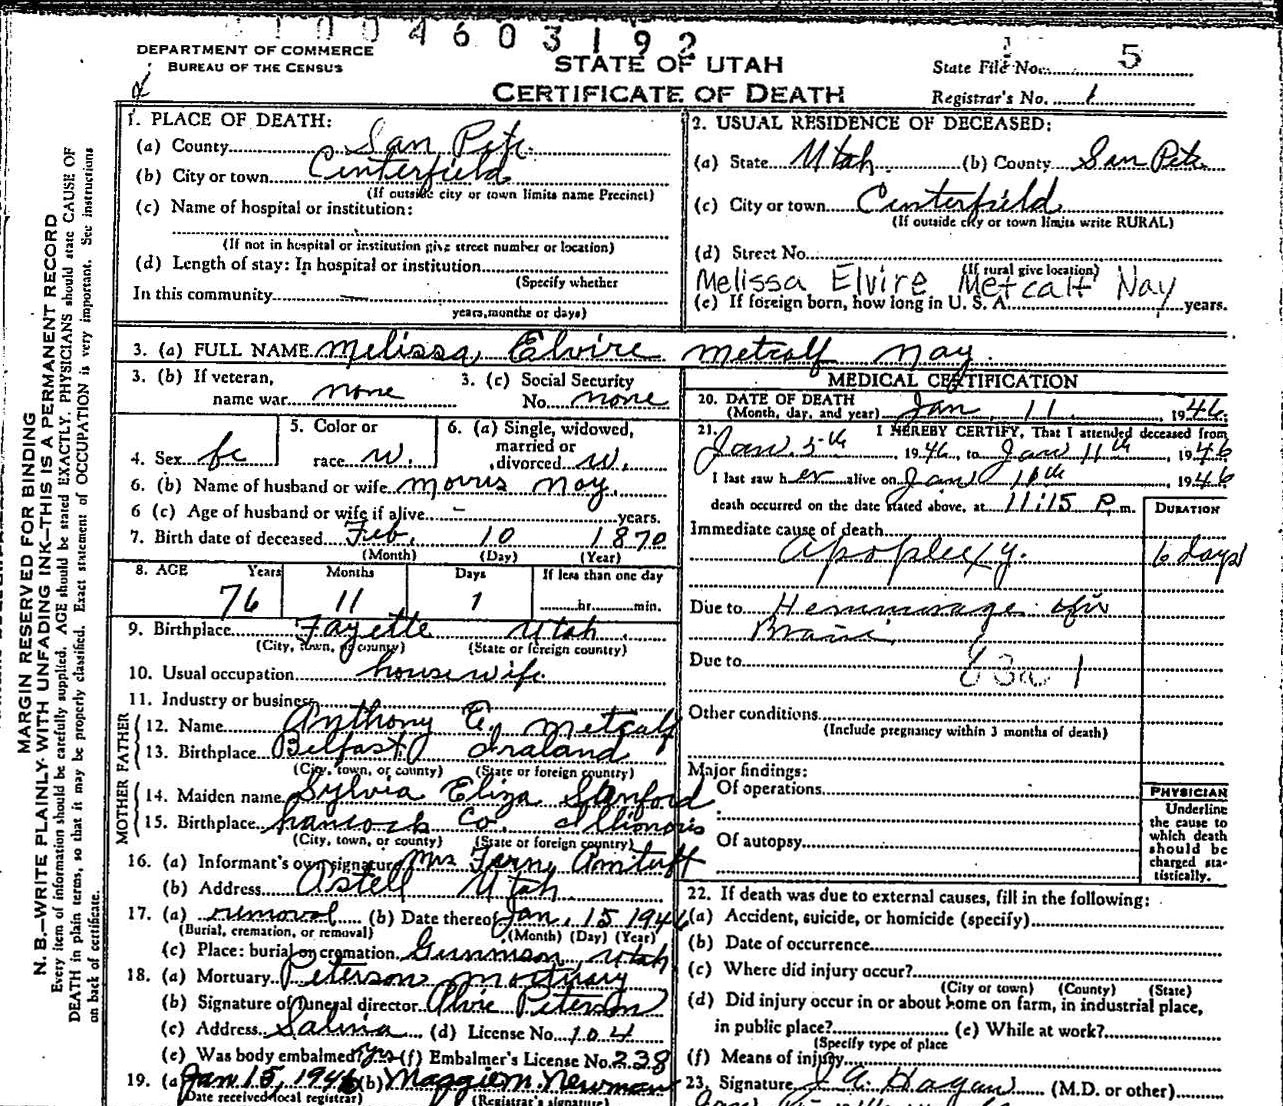 1004603192
DEPARTMENT OF COMMERCE
BUREAU OF THE CENSUS
STATE OF UTAH
CERTIFICATE OF DEATH
State File No. 5
Registrar's No. 1
MARGIN RESERVED FOR BINDING
N. B.—WRITE PLAINLY- WITH UNFADING INK—THIS IS A PERMANENT RECORD
Every item of information should be carefully supplied. AGE should be stated EXACTLY. PHYSICIANS should state CAUSE OF
DEATH in plain terms, so that it may be properly classified. Exact statement of OCCUPATION is very important. See instructions
on back of certificate.
1. PLACE OF DEATH:
(a) County San Pete
(b) City or town Centerfield
(If outside city or town limits name Precinct)
(c) Name of hospital or institution:
(If not in hospital or institution give street number or location)
(d) Length of stay: In hospital or institution
(Specify whether
In this community —
years, months or days)
2. USUAL RESIDENCE OF DECEASED:
(a) State Utah (b) County San Pete
(c) City or town Centerfield
(If outside city or town limits write RURAL)
(d) Street No.
(If rural give location)
Melissa Elvire Metcalf Nay
(e) If foreign born, how long in U. S. A. years.
3. (a) FULL NAME Melissa Elvire Metcalf Nay
3. (b) If veteran,
name war none
3. (c) Social Security
No. none
4. Sex fe
5. Color or
race w.
6. (a) Single, widowed,
married or
divorced w.
6. (b) Name of husband or wife Morris Nay
6 (c) Age of husband or wife if alive – years.
7. Birth date of deceased Feb. 10 1870
(Month) (Day) (Year)
8. AGE Years Months Days If less than one day
76 11 1 hr. min.
9. Birthplace Fayette Utah
(City, town, or county) (State or foreign country)
10. Usual occupation housewife
11. Industry or business
FATHER
12. Name Anthony E. Metcalf
13. Birthplace Belfast Iraland
(City, town, or county) (State or foreign country)
MOTHER
14. Maiden name Sylvia Eliza Stanford
15. Birthplace Hancock Co. Illionois
(City, town, or county) (State or foreign country)
16. (a) Informant's own signature Mrs
(b) Address Utah
17. (a) removal (b) Date thereof Jan. 15 1946
(Burial, cremation, or removal) (Month) (Day) (Year)
(c) Place: burial or cremation Gunnison Utah
18. (a) Mortuary Peterson Mortuary
(b) Signature of funeral director Peterson
(c) Address Salina (d) License No. 104
(e) Was body embalmed? yes (f) Embalmer's License No. 238
19. (a) Jan 15, 1946 (b) Maggie M. Newman
Date received local registrar) (Registrar's signature)
MEDICAL CERTIFICATION
20. DATE OF DEATH
(Month, day, and year) Jan 11, 1946
21. I HEREBY CERTIFY, That I attended deceased from
Jan. 5th, 1946, to Jan 11th, 1946
I last saw her alive on Jan 10th 1946
death occurred on the date stated above, at 11:15 P. m.
DURATION
Immediate cause of death
Apoplexy. 6 days
Due to
Due to
83a 1
Other conditions
(Include pregnancy within 3 months of death)
Major findings:
Of operations
Of autopsy
PHYSICIAN
Underline
the cause to
which death
should be
charged sta-
tistically.
22. If death was due to external causes, fill in the following:
(a) Accident, suicide, or homicide (specify)
(b) Date of occurrence
(c) Where did injury occur?
(City or town) (County) (State)
(d) Did injury occur in or about home on farm, in industrial place,
in public place? (e) While at work?
(Specify type of place
(f) Means of injury
23. Signature J. A. Hagan (M.D. or other)